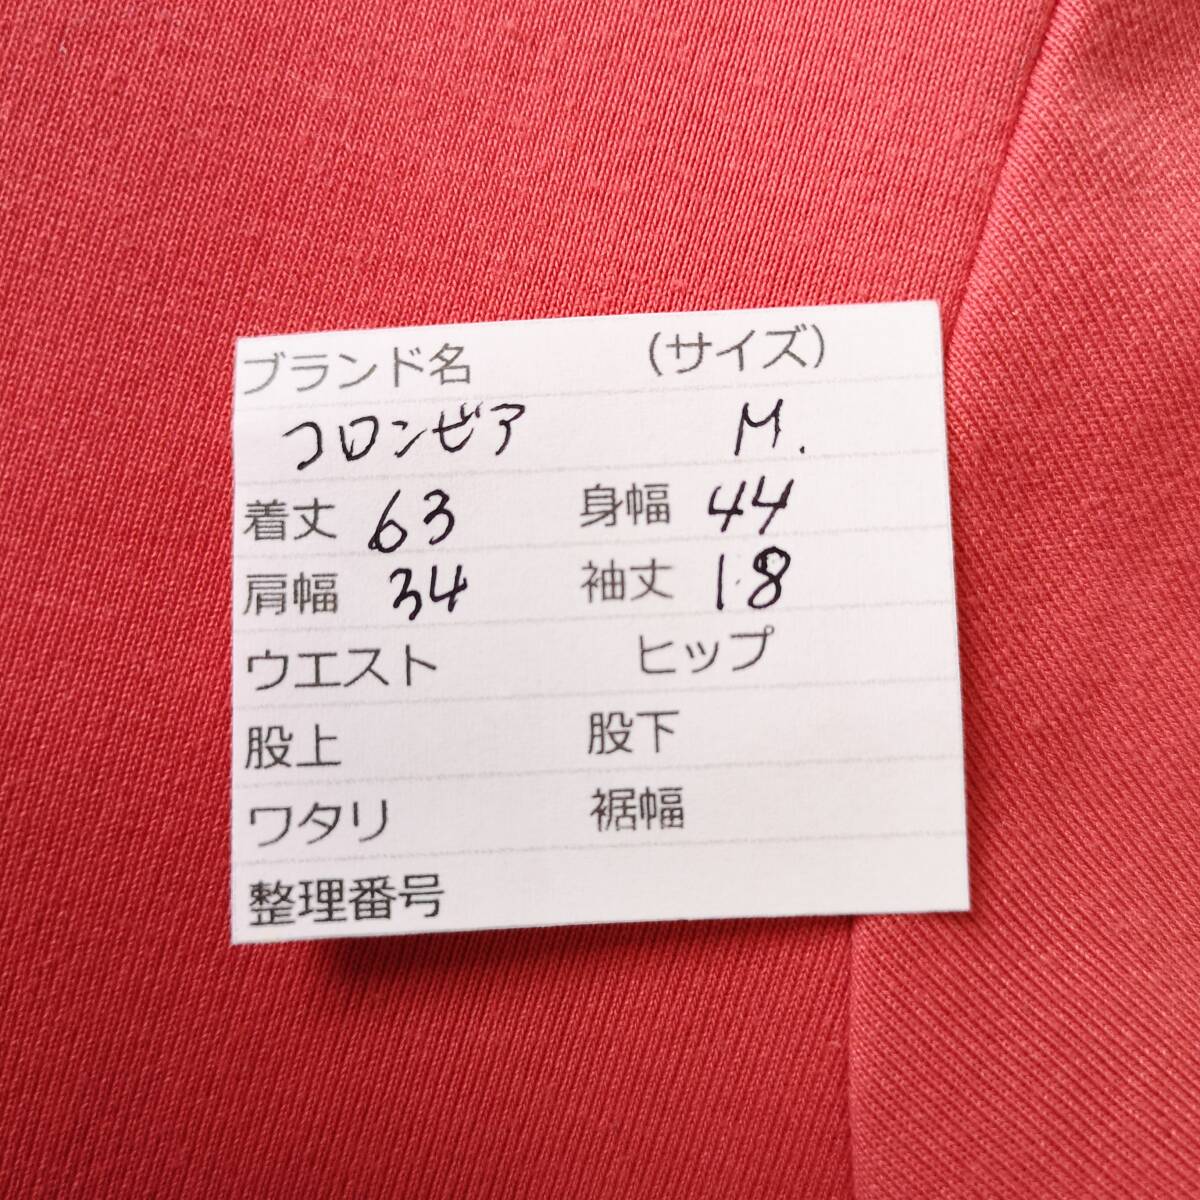 ブランド名 （サイズ）
コロンビア M.
着丈 63 身幅 44
肩幅 34 袖丈 18
ウエスト ヒップ
股上 股下
ワタリ 裾幅
整理番号